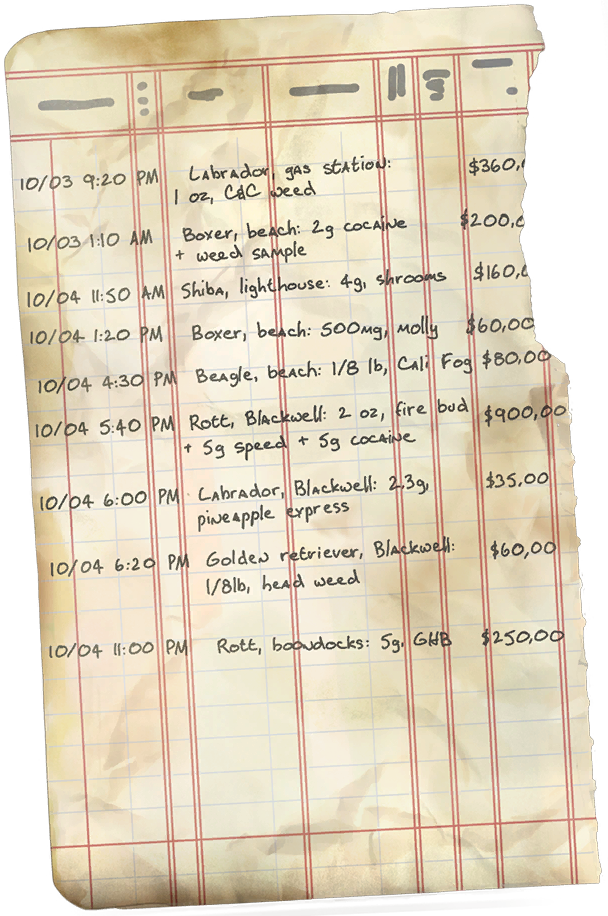 10/03 9:20 PM Labrador, gas station: $360,
1 oz, C&C weed
10/03 1:10 AM Boxer, beach: 2g cocaine $200,0
+ weed sample
10/04 11:50 AM Shiba, lighthouse: 4g, shrooms $160,0
10/04 1:20 PM Boxer, beach: 500mg, Molly $60,00
10/04 4:30 PM Beagle, beach: 1/8 lb, Cali Fog $80,00
10/04 5:40 PM Rott, Blackwell: 2 oz, fire bud $900,00
+ 5g speed + 5g cocaine
10/04 6:00 PM Labrador, Blackwell: 2,3g, $35,00
pineapple express
10/04 6:20 PM Golden retriever, Blackwell: $60,00
1/8lb, head weed
10/04 11:00 PM Rott, boondocks: 5g, GHB $250,00